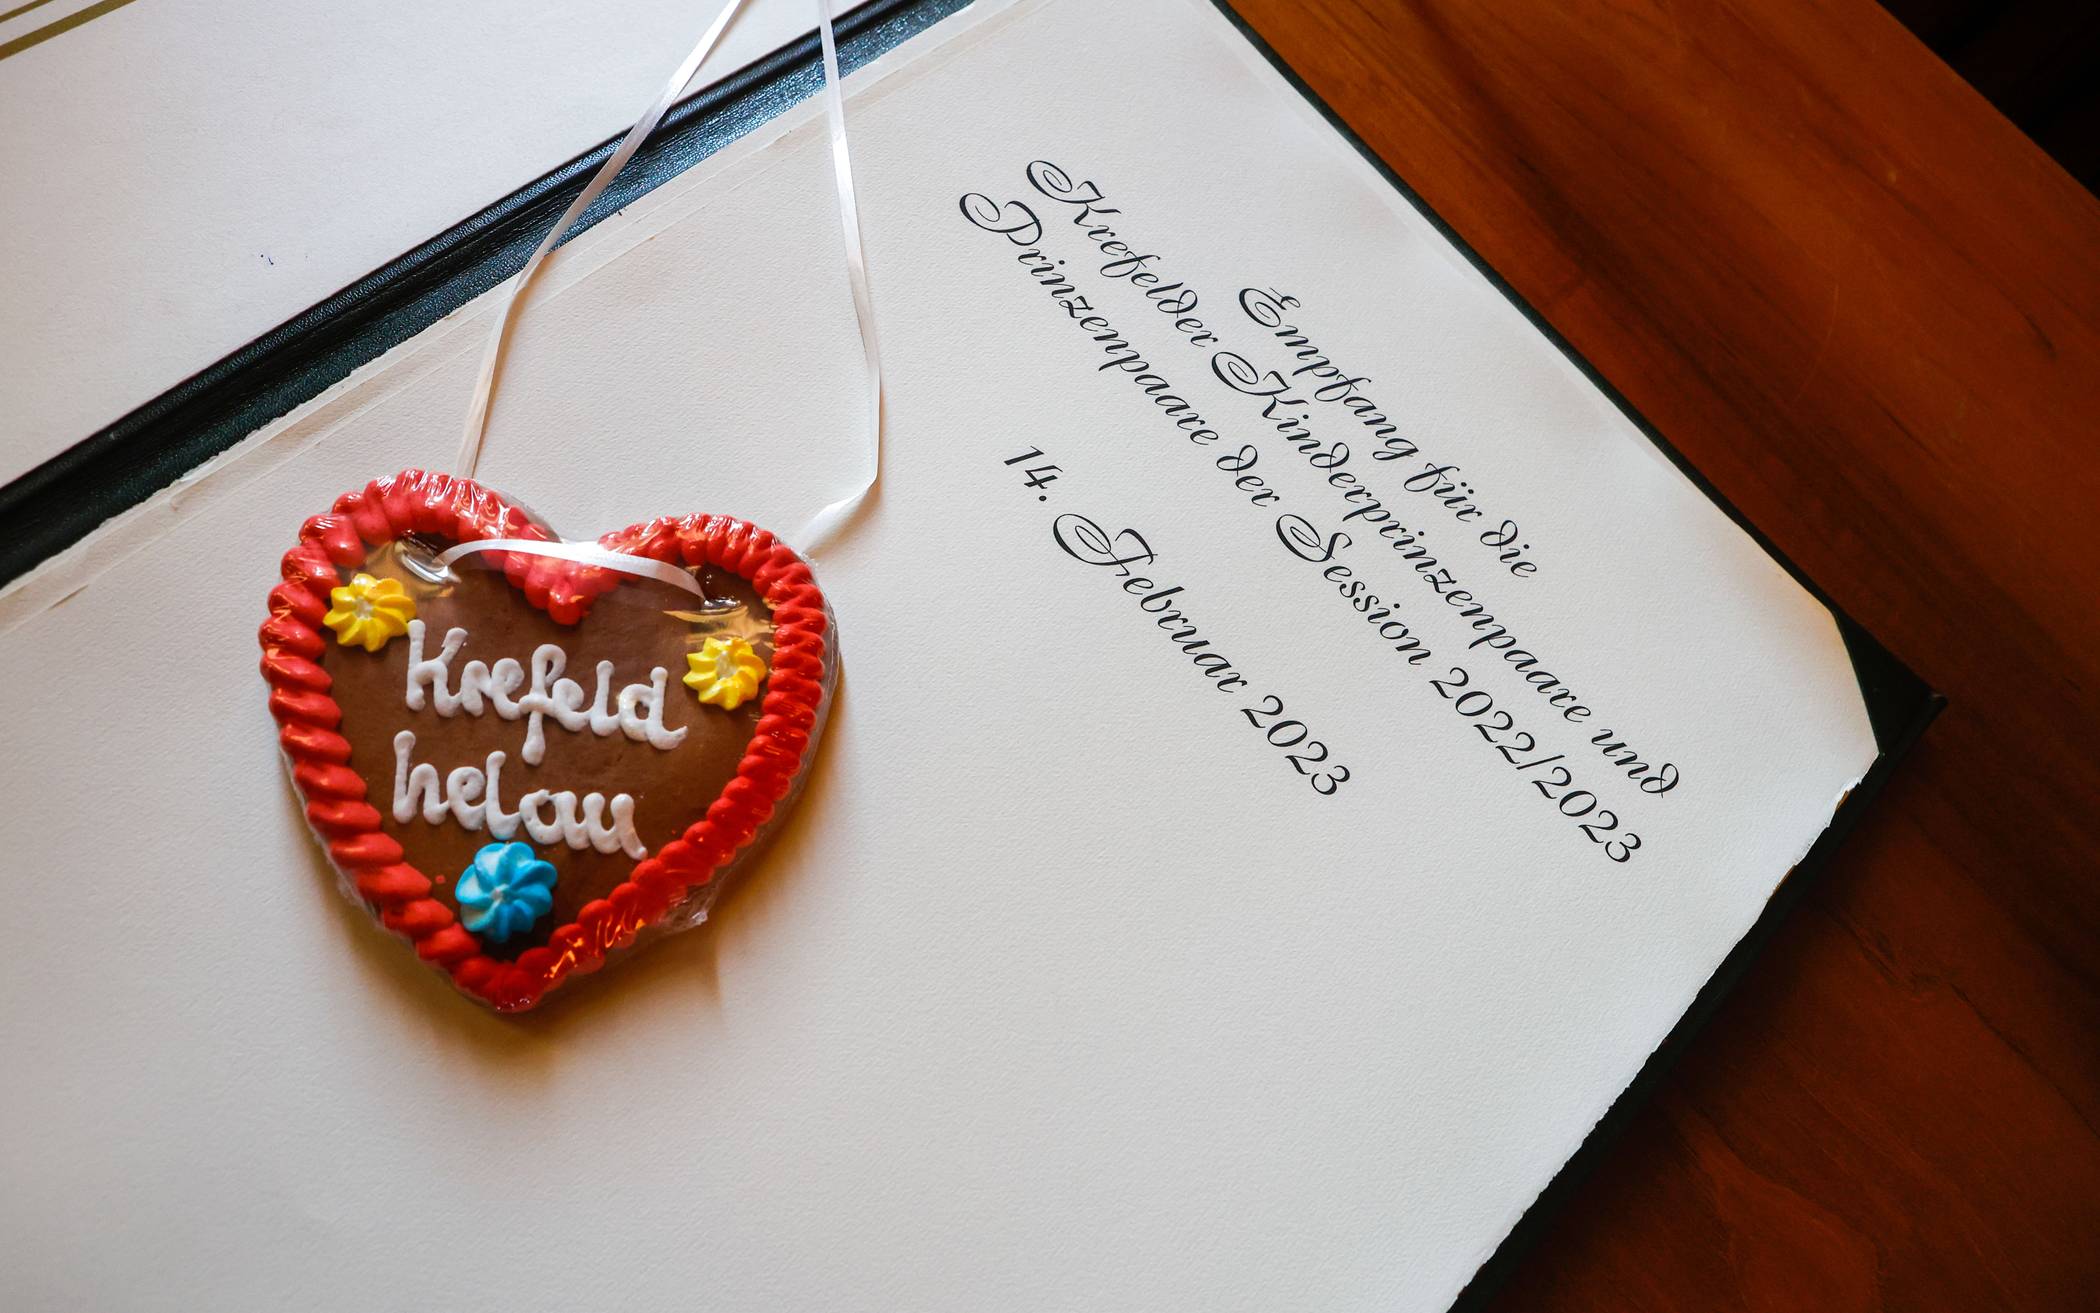 Empfang für die
Krefelder Kinderprinzenpaare und
Prinzenpaare der Session 2022/2023
14. Februar 2023
Krefeld
helau